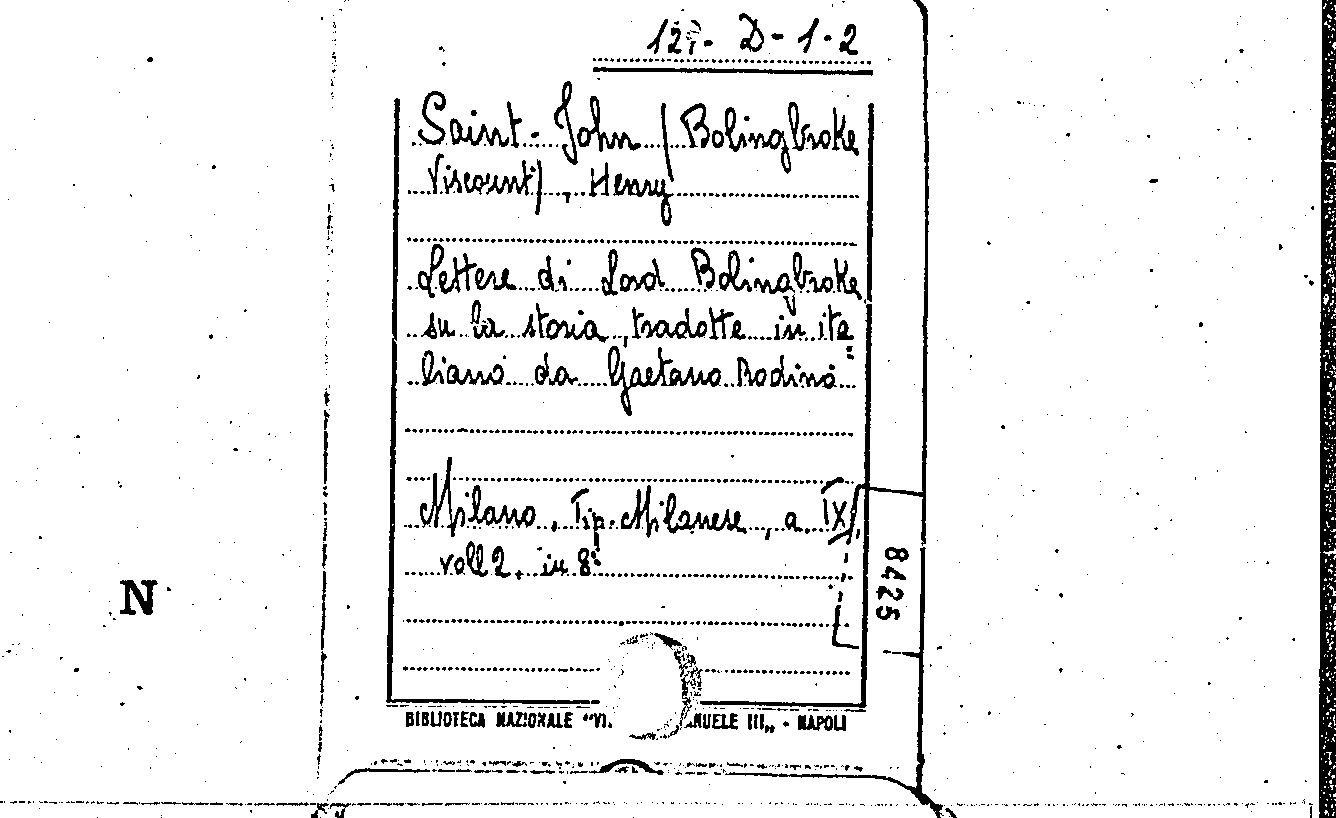 127- D-1-2
Saint-John (Bolingbroke
Viscount), Henry
Lettere di Lord Bolingbroke
su la storia, tradotte in ita
liano da Gaetano Rodinò
Milano, Tip. Milanese, a. IX,
voll 2. in 8°
8425
N
BIBLIOTECA NAZIONALE "VI ANUELE III„ - NAPOLI